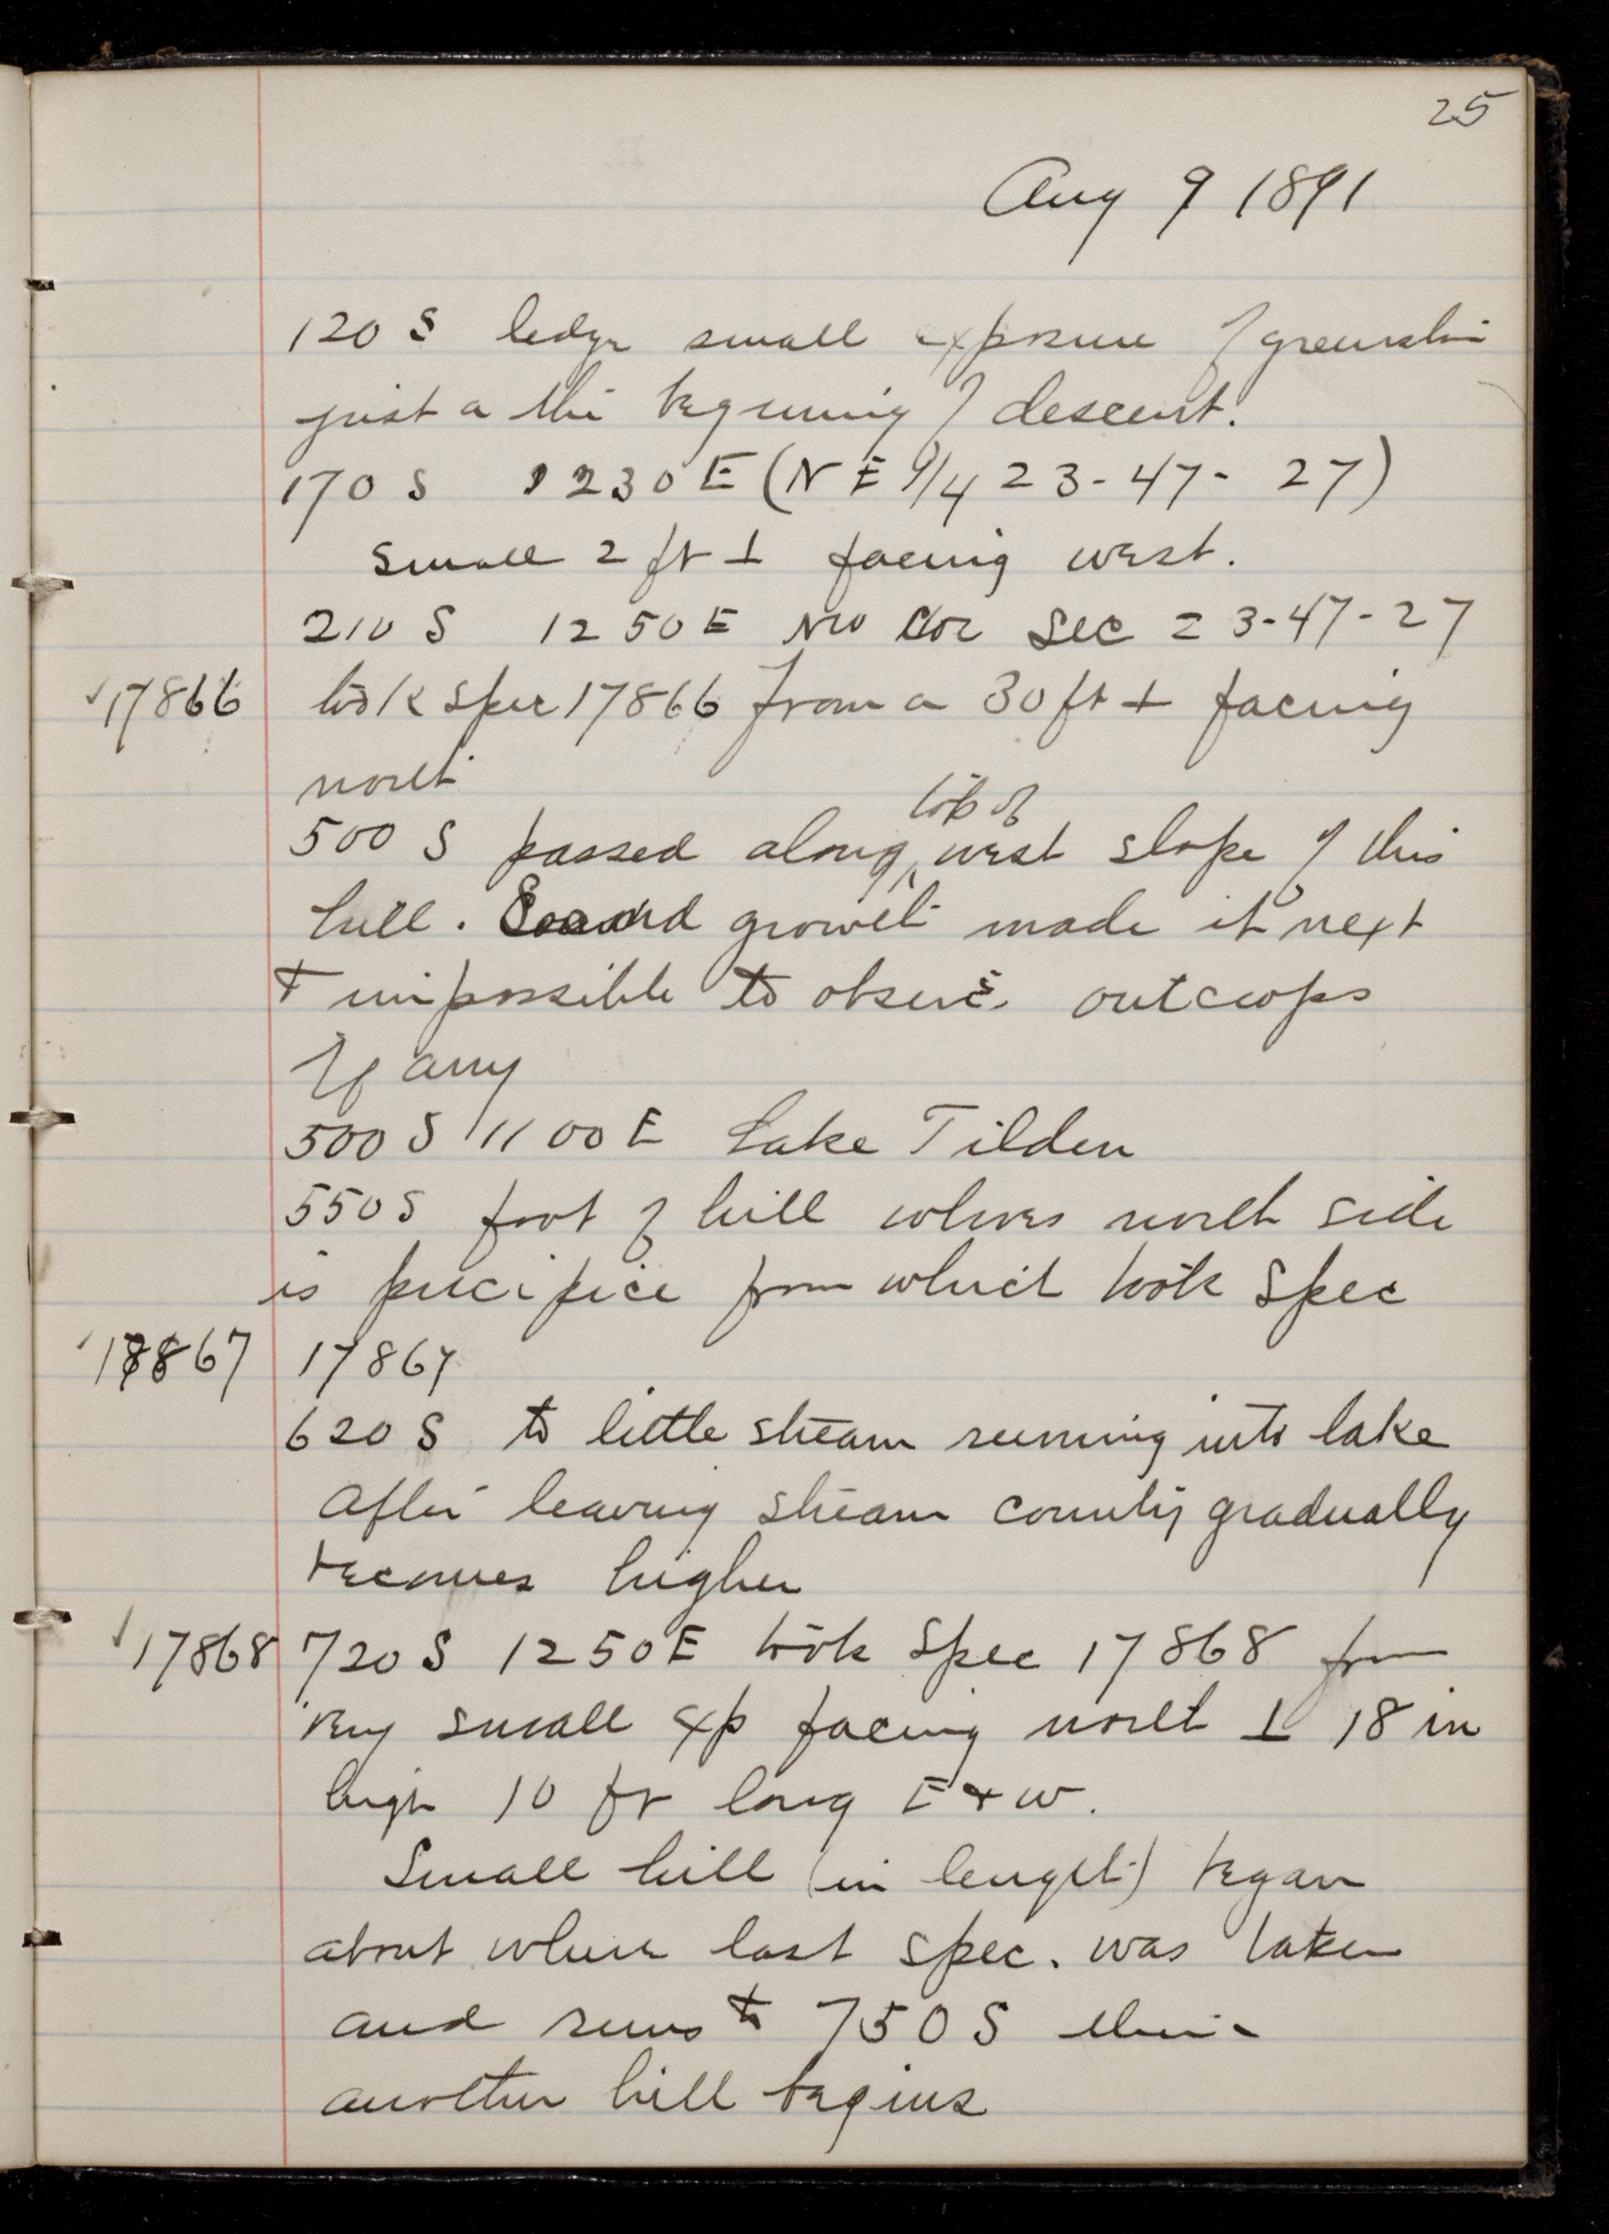 25
Aug 9 1891
120 S ledge small exposure of greenston
just a the begining of descent.
170 S 1230 E (N E 1/4 23-47-27)
Small 2 ft ⊥ facing west.
210 S 1250 E NW Cor Sec 23-47-27
17866 took spec 17866 from a 30 ft ⊥ facing
north
500 S passed along top of west slope of this
hill. Second growth made it next
to impossible to observe outcrops
If any
500 S 1100 E Lake Tilden
550 S foot of hill whoes north side
is precipice from which took Spec
17867 17867
620 S to little stream running into lake
After leaving stream country gradually
becomes higher
17868 720 S 1250 E took Spec 17868 from
very small exp facing north ⊥ 18 in
high 10 ft long E + W.
Small hill (in length) began
about where last spec. was taken
and runs to 750 S then
another hill begins